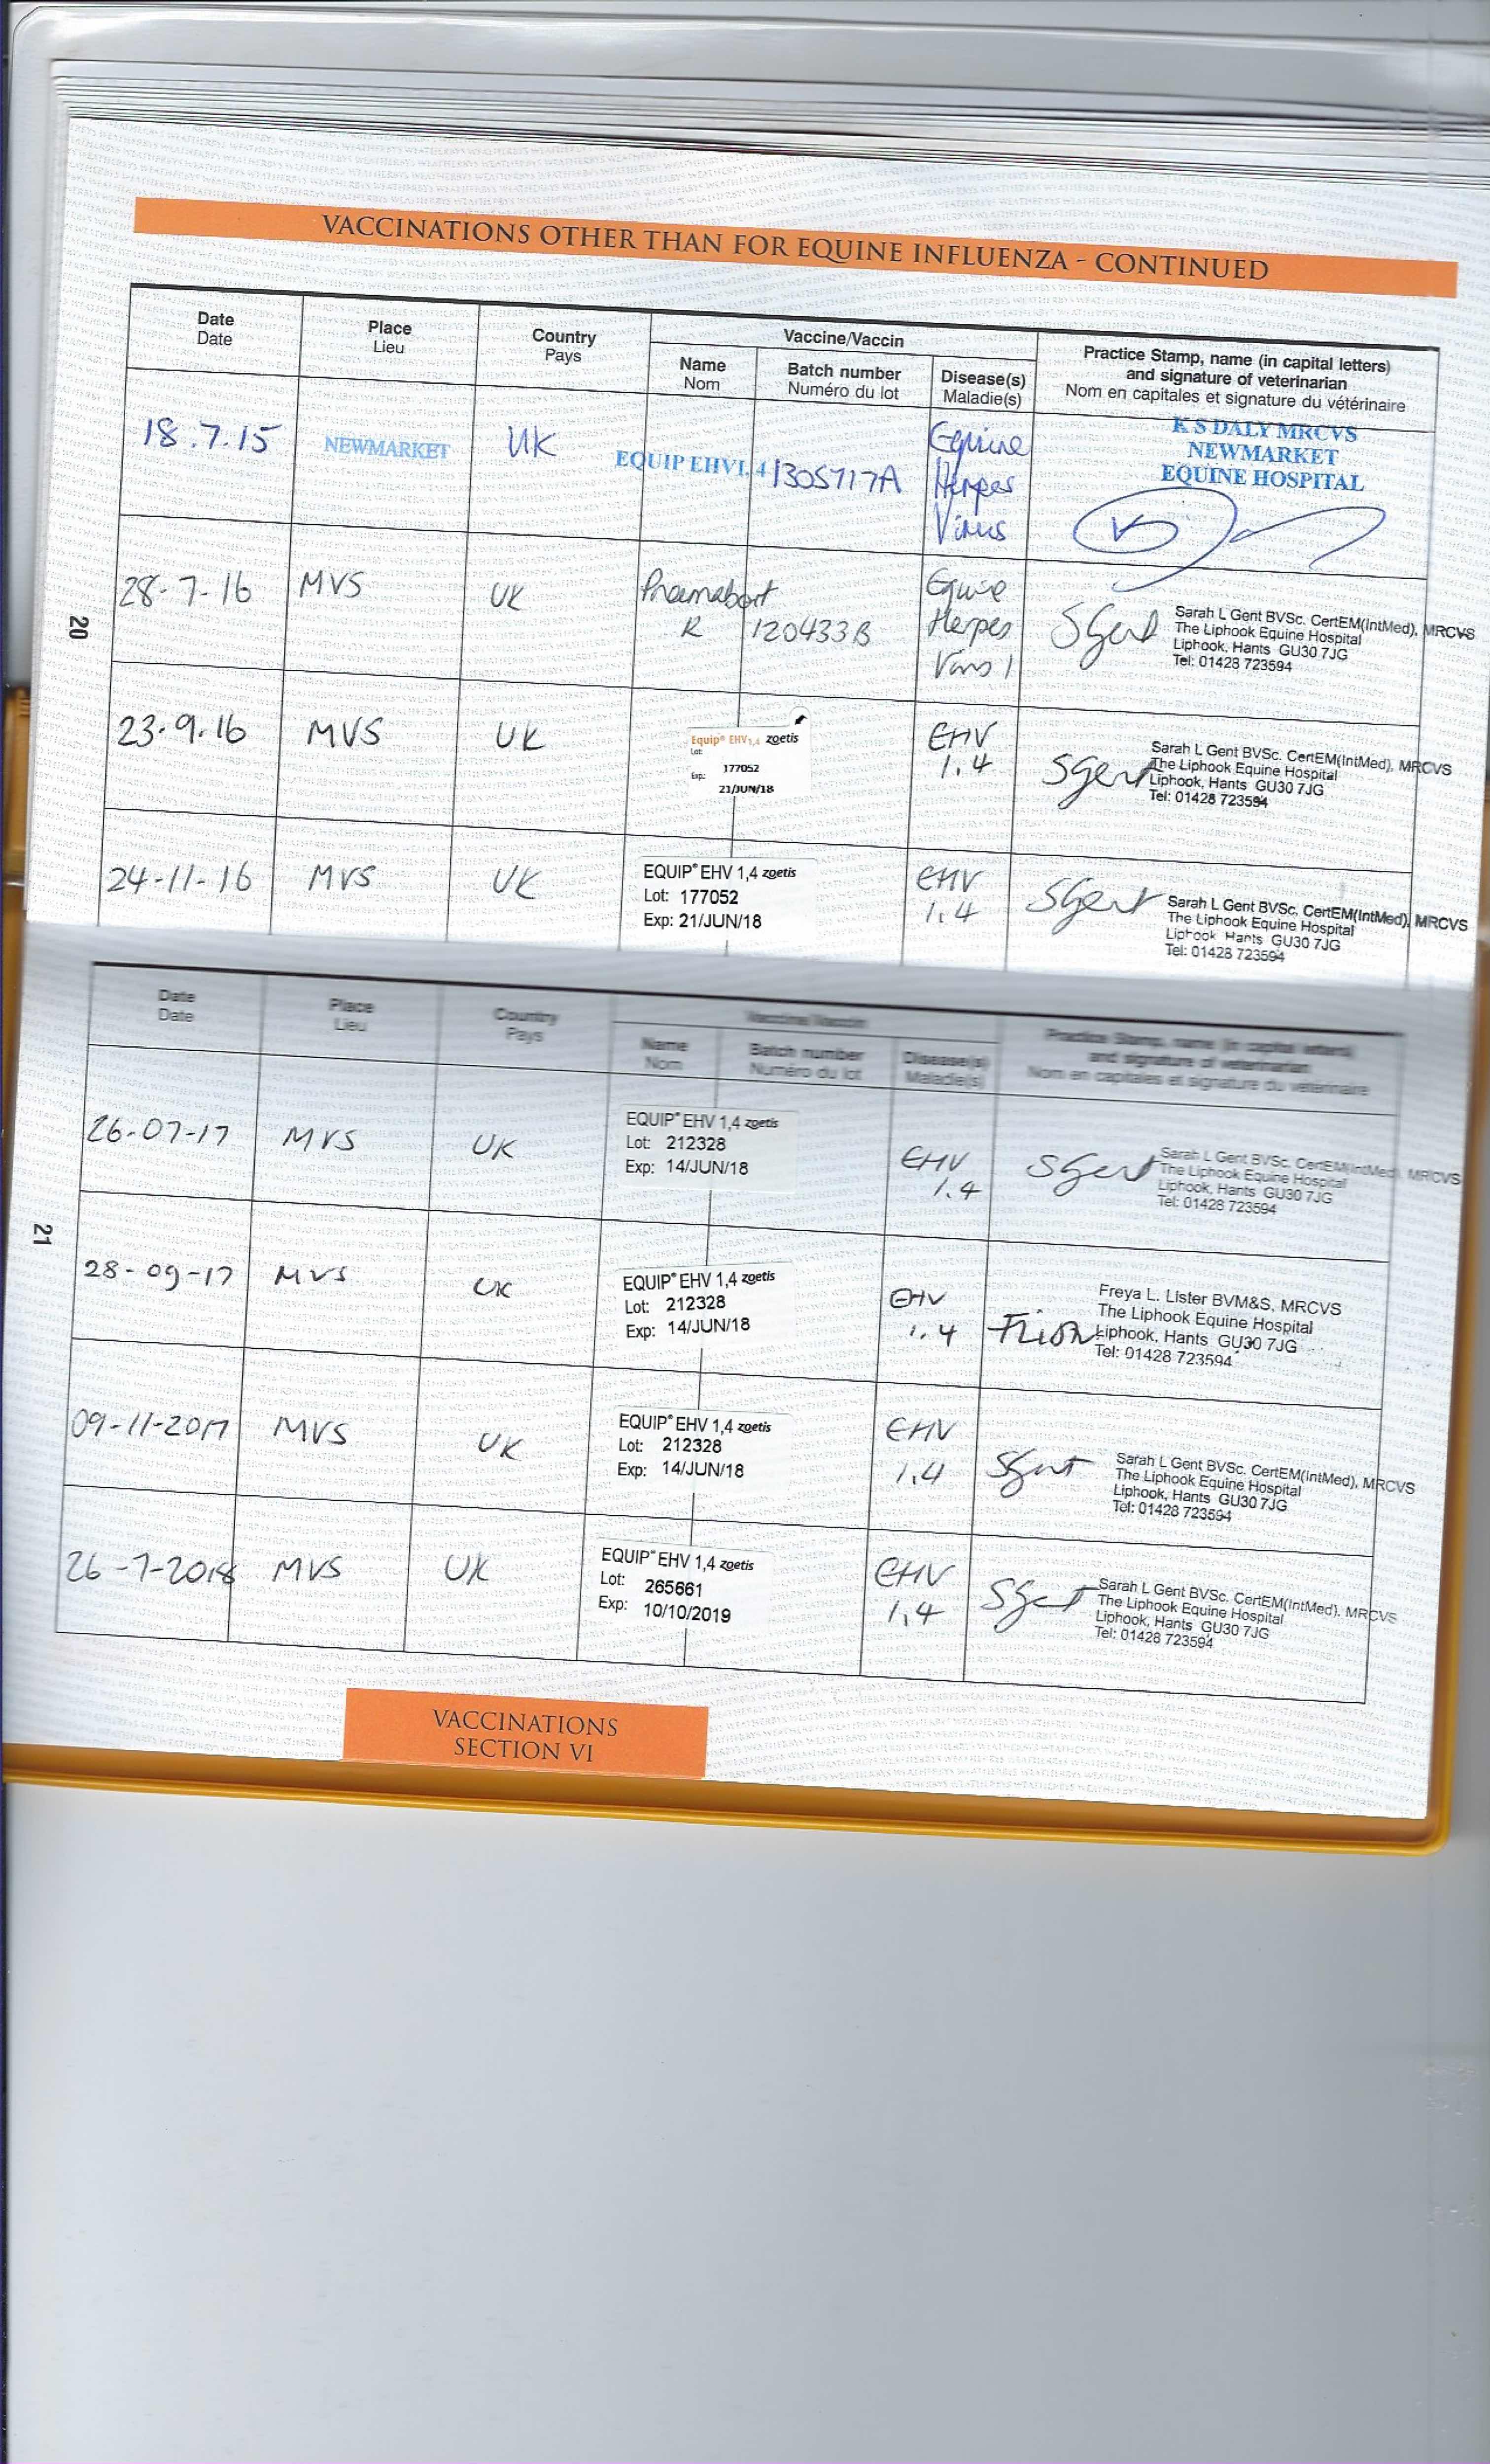 VACCINATIONS OTHER THAN FOR EQUINE INFLUENZA - CONTINUED
Date
Date
Place
Lieu
Country
Pays
Vaccine/Vaccin
Name
Nom
Batch number
Numéro du lot
Disease(s)
Maladie(s)
Practice Stamp, name (in capital letters)
and signature of veterinarian
Nom en capitales et signature du vétérinaire
18.7.15
NEWMARKET
UK
EQUIP EHV1,4
1305717A
Equine
Herpes
Virus
K S DALY MRCVS
NEWMARKET
EQUINE HOSPITAL
28-7-16
MVS
UK
R
120433B
Equine
Herpes
Virus 1
SGent
Sarah L Gent BVSc. CertEM(IntMed), MRCVS
The Liphook Equine Hospital
Liphook, Hants GU30 7JG
Tel: 01428 723594
20
23.9.16
MVS
UK
Equip® EHV1,4 zoetis
Lot:
177052
Exp:
21/JUN/18
EHV
1.4
SGent
Sarah L Gent BVSc. CertEM(IntMed), MRCVS
The Liphook Equine Hospital
Liphook, Hants GU30 7JG
Tel: 01428 723594
24-11-16
MVS
UK
EQUIP® EHV 1,4 zoetis
Lot: 177052
Exp: 21/JUN/18
EHV
1.4
SGent
Sarah L Gent BVSc. CertEM(IntMed), MRCVS
The Liphook Equine Hospital
Liphook Hants GU30 7JG
Tel: 01428 723594
Date
Date
Place
Lieu
Country
Pays
Vaccine/Vaccin
Name
Nom
Batch number
Numéro du lot
Disease(s)
Maladie(s)
Practice Stamp, name (in capital letters)
and signature of veterinarian
Nom en capitales et signature du vétérinaire
26-07-17
MVS
UK
EQUIP® EHV 1,4 zoetis
Lot: 212328
Exp: 14/JUN/18
EHV
1.4
SGent
Sarah L Gent BVSc. CertEM(IntMed), MRCVS
The Liphook Equine Hospital
Liphook, Hants GU30 7JG
Tel: 01428 723594
21
28-09-17
MVS
UK
EQUIP® EHV 1,4 zoetis
Lot: 212328
Exp: 14/JUN/18
EHV
1.4
Freya L. Lister BVM&S, MRCVS
The Liphook Equine Hospital
Liphook, Hants GU30 7JG
Tel: 01428 723594
09-11-2017
MVS
UK
EQUIP® EHV 1,4 zoetis
Lot: 212328
Exp: 14/JUN/18
EHV
1.4
SGent
Sarah L Gent BVSc. CertEM(IntMed), MRCVS
The Liphook Equine Hospital
Liphook, Hants GU30 7JG
Tel: 01428 723594
26-7-2018
MVS
UK
EQUIP® EHV 1,4 zoetis
Lot: 265661
Exp: 10/10/2019
EHV
1.4
SGent
Sarah L Gent BVSc. CertEM(IntMed), MRCVS
The Liphook Equine Hospital
Liphook, Hants GU30 7JG
Tel: 01428 723594
VACCINATIONS
SECTION VI